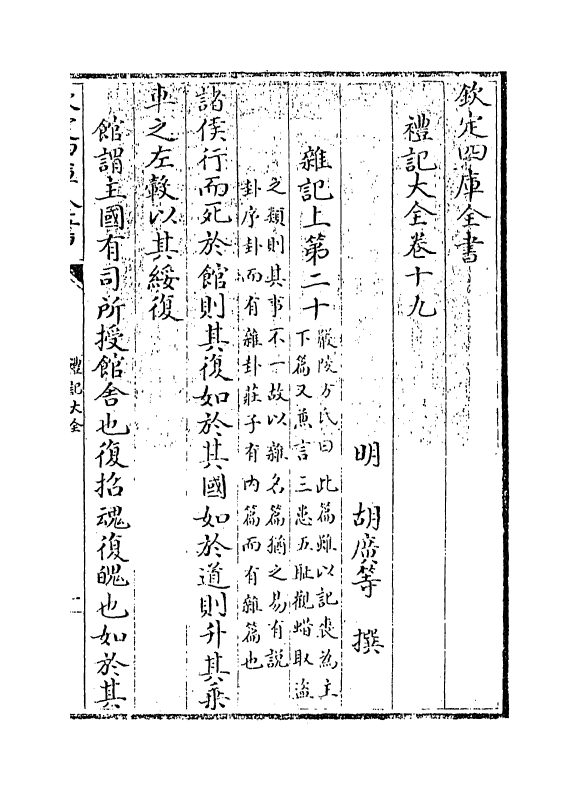 欽定四庫全書
禮記大全卷十九
明 胡廣等 撰
雜記上第二十
嚴陵方氏曰此篇雖以記喪為主
下篇又兼言三患五恥觀蜡取盜
之類則其事不一故以雜名篇猶之易有說
卦序卦而有雜卦莊子有內篇而有雜篇也
諸侯行而死於館則其復如於其國如於道則升其乘
車之左轂以其綏復
館謂主國有司所授館舍也復招魂復魄也如於其
禮記大全
一